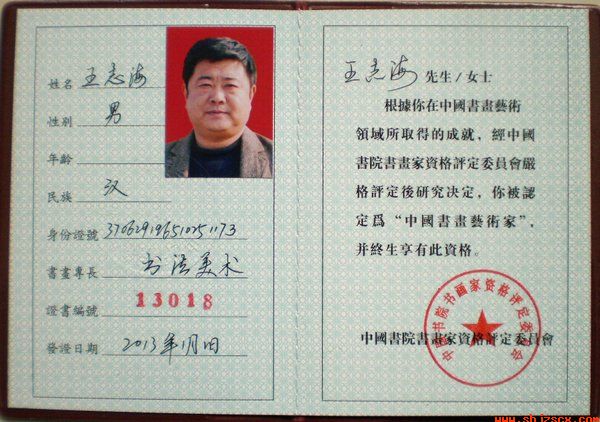 姓名 王志海
性别 男
年齡
民族 汉
身份證號 370629196510251173
書畫專長 书法美术
證書編號 13018
發證日期 2013年1月日
王志海 先生/女士
根據你在中國書畫藝術
領域所取得的成就，經中國
書院書畫家資格評定委員會嚴
格評定後研究決定，你被認
定爲“中國書畫藝術家”，
并終生享有此資格。
中國書院書畫家資格評定委員會
中国书院书画家资格评定委员会